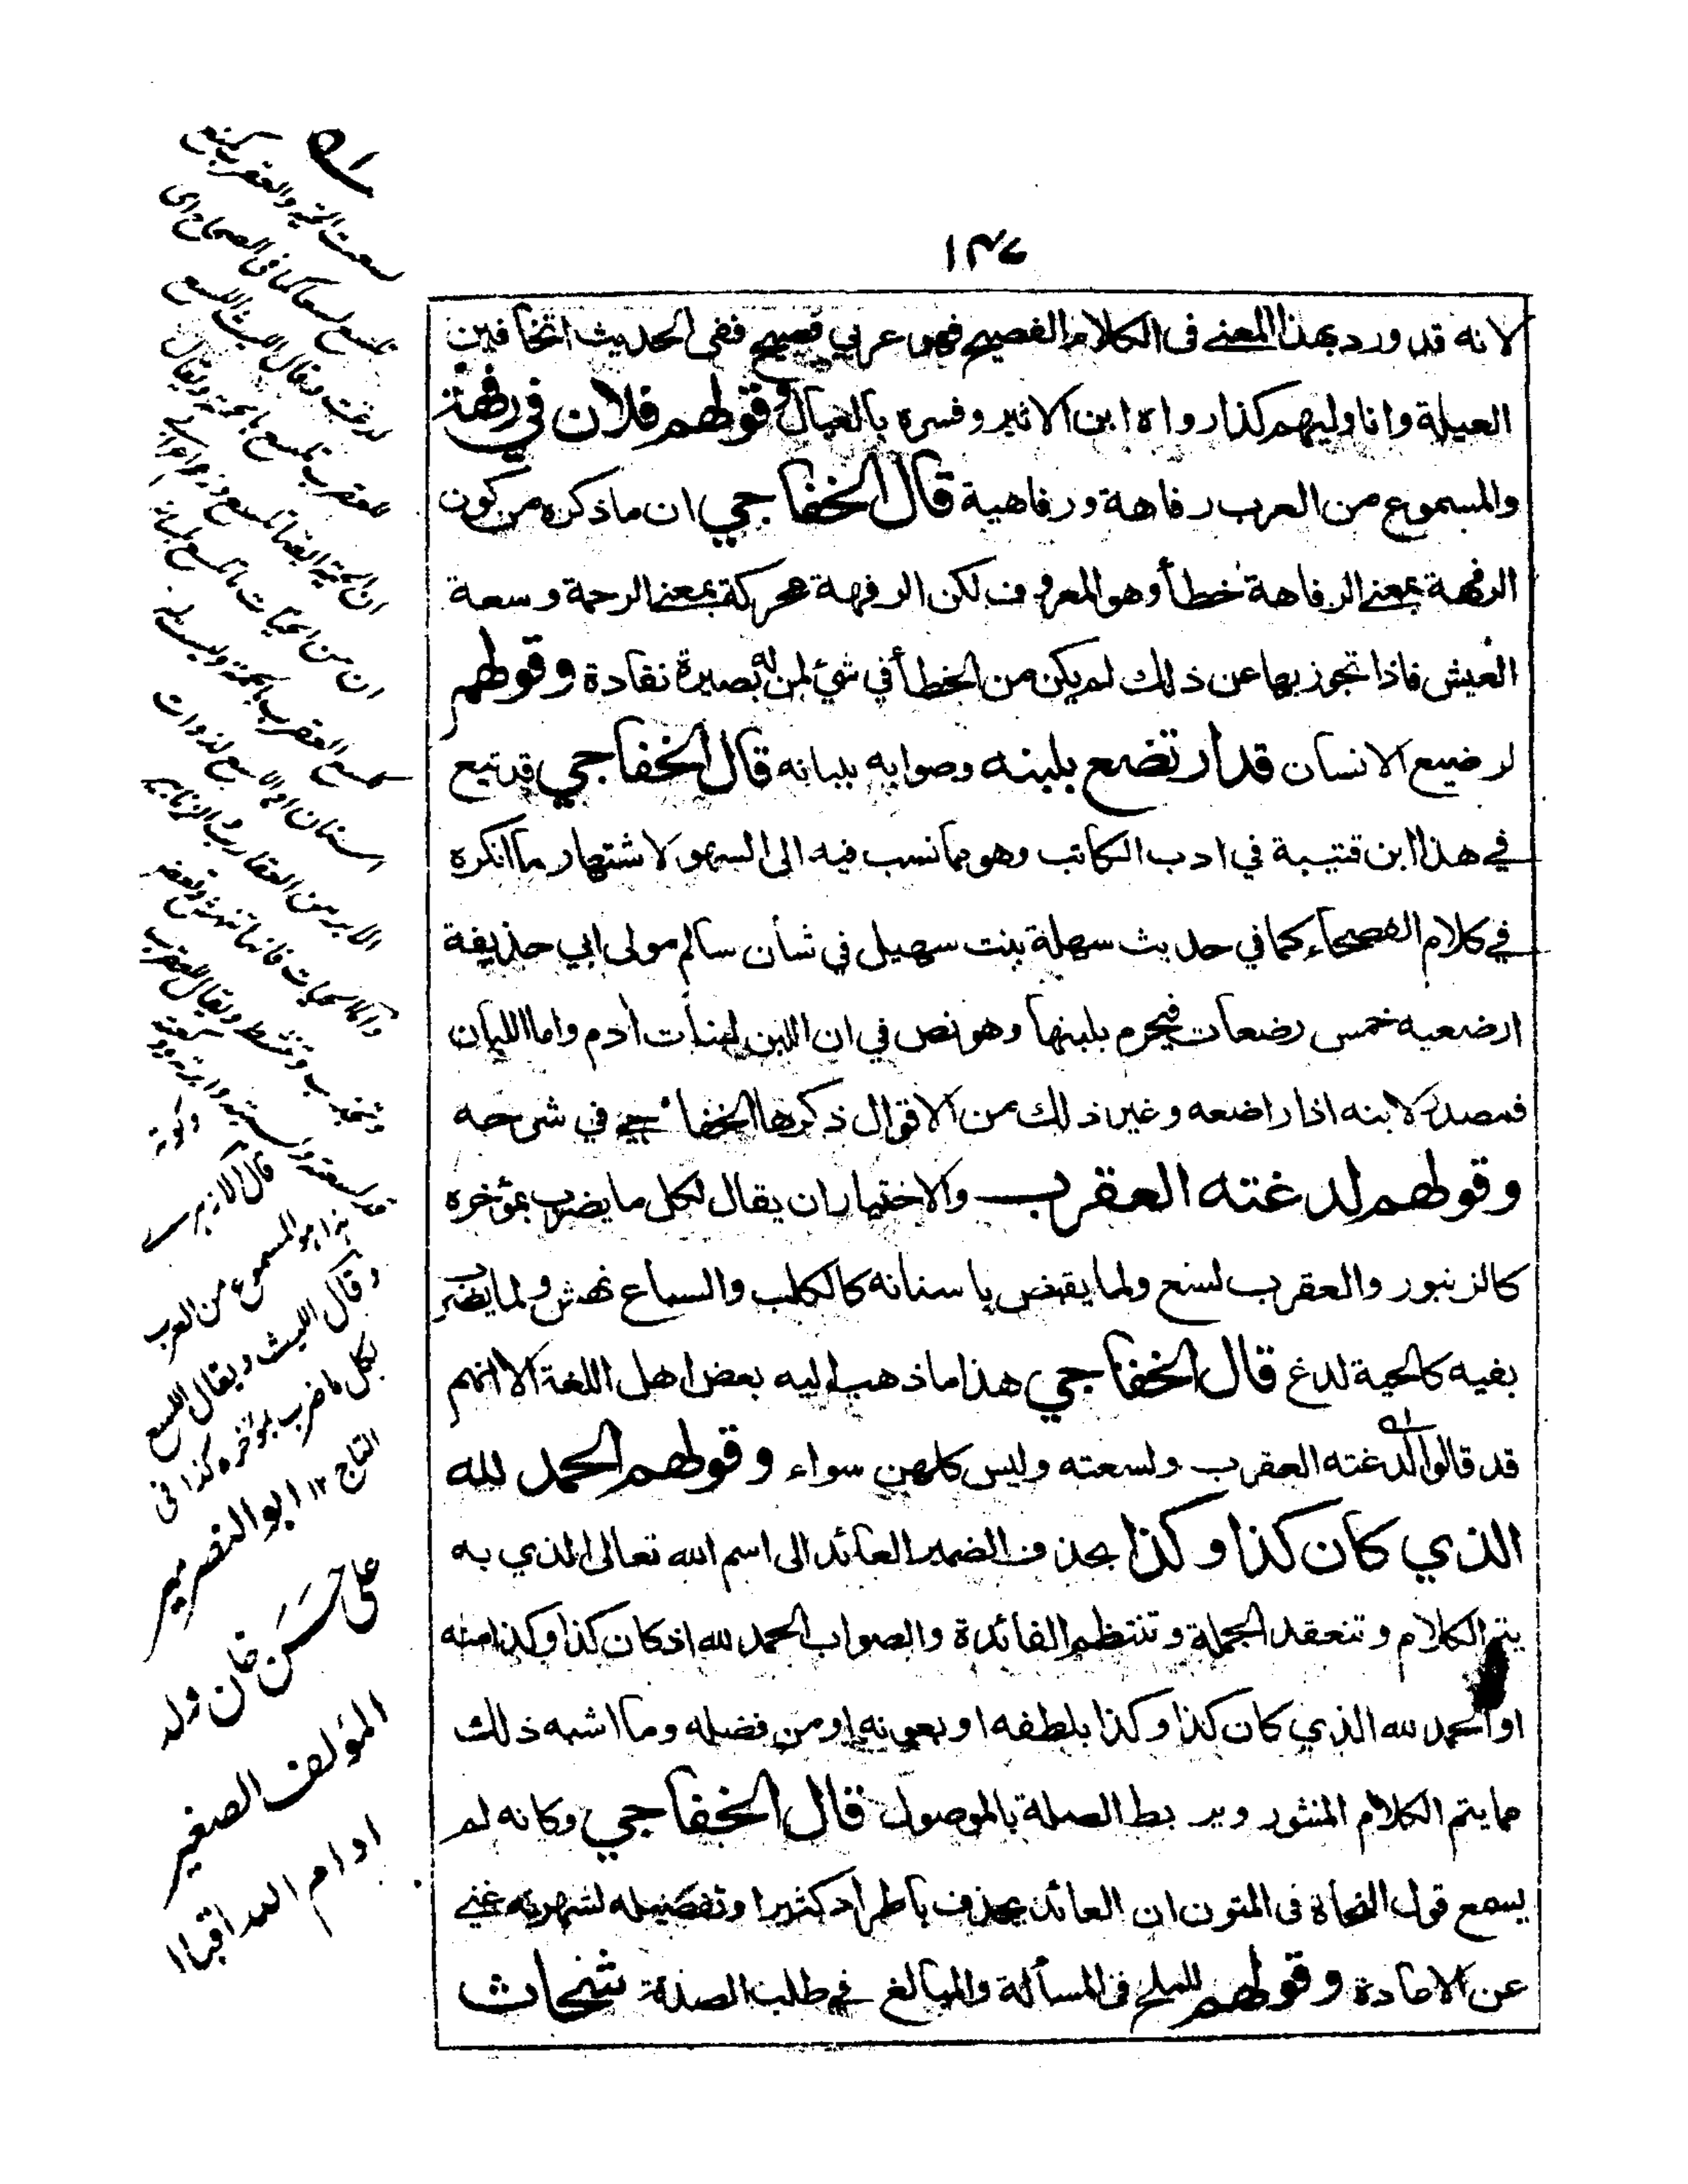 ١٣٤
لانه قد ورد بهذا المعنے فى الكلام الفصيح فهو عربي فصيح ففى الحديث اتخافين
العيلة وانا وليهم كذا رواه ابن الاثير وفسره بالعيال وقولهم فلان في رفهة
والمسموع من العرب رفاهة ورفاهية قال الخفاجي ان ما ذكره من كون
الرفهة بمعنے الرفاهة خطأ وهو المعروف لكن الرفهة محركة بمعنے الرحمة وسعة
العيش فاذا تجوز بها عن ذلك لم يكن من الخطأ في شيء لمن له بصيرة نقادة وقولهم
لرضيع الانسان قد ارتضع بلبنه وصوابه بلبانه قال الخفاجي قد تبع
في هذا ابن قتيبة في ادب الكاتب وهو مما نسب فيه الى السهو لاشتهار ما انكره
في كلام الفصحاء كما في حديث سهلة بنت سهيل في شأن سالم مولى ابي حذيفة
ارضعيه خمس رضعات فيحرم بلبنها وهو نص في ان اللبن لبنات أدم واما اللبان
فمصدر لابنه اذا راضعه وغير ذلك من الاقوال ذكرها الخفاجي في شرحه
وقولهم لدغته العقرب والاختيار ان يقال لكل ما يضرب بمؤخره
كالزنبور والعقرب لسع ولما يقبض باسنانه كالكلب والسباع نهش ولما يضرب
بفيه كالحية لدغ قال الخفاجي هذا ما ذهب اليه بعض اهل اللغة الا انهم
قد قالوا لدغته العقرب ولسعته وليس كلهن سواء وقولهم الحمد لله
الذي كان كذا وكذا بحذف الضمير العائد الى اسم الله تعالى الذي به
يتم الكلام وتنعقد الجملة وتنتظم الفائدة والصواب الحمد لله اذ كان كذا وكذا منه
او الحمد لله الذي كان كذا وكذا بلطفه او بعونه او من فضله وما اشبه ذلك
مما يتم الكلام المنثور ويربط الصلة بالموصول قال الخفاجي وكانه لم
يسمع قول النحاة فى المتون ان العائد يحذف باطراد كثيرا وتفصيله لشهرته غنے
عن الاعادة وقولهم للملح فى المسألة والمبالغ في طلب الصدقة شحاث
لسعت الحية والعقرب كمنع
تلسع لسعا كما فى الصحاح اى
لدغت وقال الليث اللسع
للعقرب تلسع بالحمة ويقال
ان الحية ايضا تلسع وزعم اعرابى
ان من الحيات ما يلسع بلسانه
كلسع العقرب بالحمة وليست له
اسنان او اللسع لذوات
الابر من العقارب والزنابير
واما الحيات فانها تنهش وتعض
وتجذب وتنشط ويقال للعقرب
قد لسعته
وكوته
قال الازهرى
هذا هو المسموع من العرب
وقال الليث ويقال اللسع
لكل ما ضرب بمؤخره كذا فى
التاج ١٢ ابو النصر مير
على حسن خان ولد
المؤلف الصغير
ادام الله اقباله